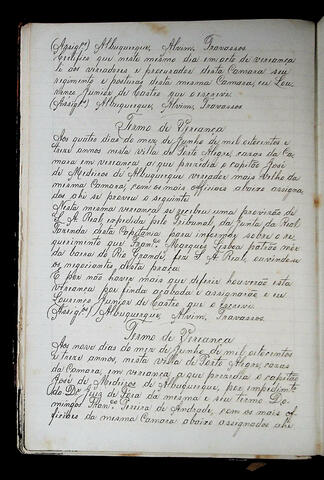 (Assign.os) Albuquerque, Alvim, Travassos
Certifico que neste mesmo dia em acto de vereança
li aos vereadores e procurador desta Camara seu
regimento e posturas desta mesma Camara, eu Lou-
renço Junior de Castro que o escrevi.
(Assign.os) Albuquerque, Alvim, Travassos.
Termo de Vereança
Aos quatro dias do mez de Junho de mil oitocentos e
treze annos, nesta villa de Porto Alegre, casas da Ca-
mara em vereança a que presidio o capitão José
de Medeiros de Albuquerque vereador mais velho da
mesma Camara, com os mais officiaes abaixo assigna-
dos ahi se proveu o seguinte.
Nesta mesma vereança se recebeu uma provisão de
S. A. Real, expedida pelo Tribunal da Junta da Real
Fazenda desta Capitania para informar sobre o re-
querimento que Fran.co Marques Lisboa patrão mór
da barra do Rio Grande, fez S. A. Real, ouvindo-se
os negociantes desta praça.
E por não haver mais que deferir houverão esta
vereança por finda acabada e assignarão e eu
Lourenço Junior de Castro que o escrevi.
(Assign.os) Albuquerque, Alvim, Travassos.
Termo de Vereança
Aos nove dias do mez de Junho de mil oitocentos
e treze annos, nesta villa de Porto Alegre, casas
da Camara, em vereança a que presidio o capitão
José de Medeiros de Albuquerque, por impedimento
do Dr. Juiz de Fora da mesma e seu termo Do-
mingos Fran.co Pereira de Andrade, com os mais of-
ficiaes da mesma Camara abaixo assignados ahi